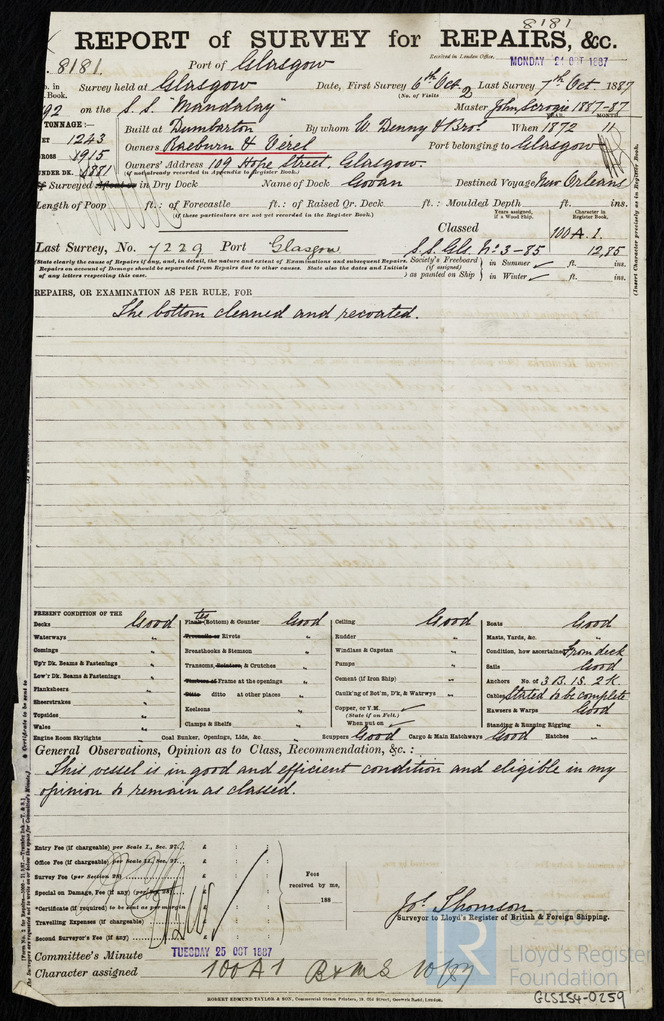 8181
REPORT of SURVEY for REPAIRS, &c.
8181. Port of Glasgow Received in London Office. MONDAY 24 OCT 1887
Survey held at Glasgow Date, First Survey 6th Oct. Last Survey 7th Oct. 1887
Book. (No. of Visits 2
92 on the S.S. "Mandalay" Master John Scrogie 1887-87
YEAR. MONTH.
TONNAGE:—
1243 Built at Dumbarton By whom W. Denny & Bros. When 1872 11
1915 Owners Raeburn & Verel Port belonging to Glasgow
UNDER DK. 1881 Owners' Address 109 Hope Street, Glasgow.
(if not already recorded in Appendix to Register Book.)
Surveyed Afloat or in Dry Dock Name of Dock Govan Destined Voyage New Orleans
Length of Poop ft. : of Forecastle ft. : of Raised Qr. Deck ft. : Moulded Depth ft. ins.
(if these particulars are not yet recorded in the Register Book.)
Years assigned, if a Wood Ship. Character in Register Book.
Classed 100 A. 1.
Last Survey, No. 7229 Port Glasgow S.S. Gls. No. 3-85 12,85
(State clearly the cause of Repairs if any, and, in detail, the nature and extent of Examinations and subsequent Repairs.
Repairs on account of Damage should be separated from Repairs due to other causes. State also the dates and Initials
of any letters respecting this case.)
Society's Freeboard (if assigned) as painted on Ship
in Summer ✓ ft. ins.
in Winter ✓ ft. ins.
(Insert Character precisely as in Register Book.)
REPAIRS, OR EXAMINATION AS PER RULE, FOR
The bottom cleaned and recoated.
PRESENT CONDITION OF THE
Decks Good
Waterways "
Comings "
Up'r Dk. Beams & Fastenings "
Low'r Dk. Beams & Fastenings "
Planksheers "
Sheerstrakes "
Topsides "
Wales "
Engine Room Skylights "
Plates (Bottom) & Counter Good
Treenails or Rivets "
Breasthooks & Stemson "
Transoms, Pointers, & Crutches "
Timbers of Frame at the openings "
Ditto ditto at other places "
Keelsons "
Clamps & Shelfs "
Coal Bunker, Openings, Lids, &c. "
Ceiling Good
Rudder "
Windlass & Capstan "
Pumps "
Cement (if Iron Ship) "
Caulking of Bot'm, D'k, & Waterwys "
Copper, or Y.M. ✓
(State if on Felt.)
When put on ✓
Scuppers Good Cargo & Main Hatchways Good Hatches "
Boats Good
Masts, Yards, &c. "
Condition, how ascertained from deck
Sails Good
Anchors No. of 3 B. 1 S. 2 K.
Cables Stated to be complete
Hawsers & Warps Good
Standing & Running Rigging "
General Observations, Opinion as to Class, Recommendation, &c. :
This vessel is in good and efficient condition and eligible in my
opinion to remain as classed.
Entry Fee (if chargeable) per Scale I., Sec. 27... £ : :
Office Fee (if chargeable) per Scale II., Sec. 27... £ : :
Survey Fee (per Section 28) £ : :
Special on Damage, Fee (if any) £ : :
*Certificate (if required) to be sent as per margin £ : :
Travelling Expenses (if chargeable) £ : :
Second Surveyor's Fee (if any) £ : :
Fees received by me, 188
Jos. Thomson
Surveyor to Lloyd's Register of British & Foreign Shipping.
Committee's Minute TUESDAY 25 OCT 1887
Character assigned 100A1
ROBERT EDMUND TAYLOR & SON, Commercial Steam Printers, 19, Old Street, Goswell Road, London.
Lloyd's Register
Foundation
GLS154-0259